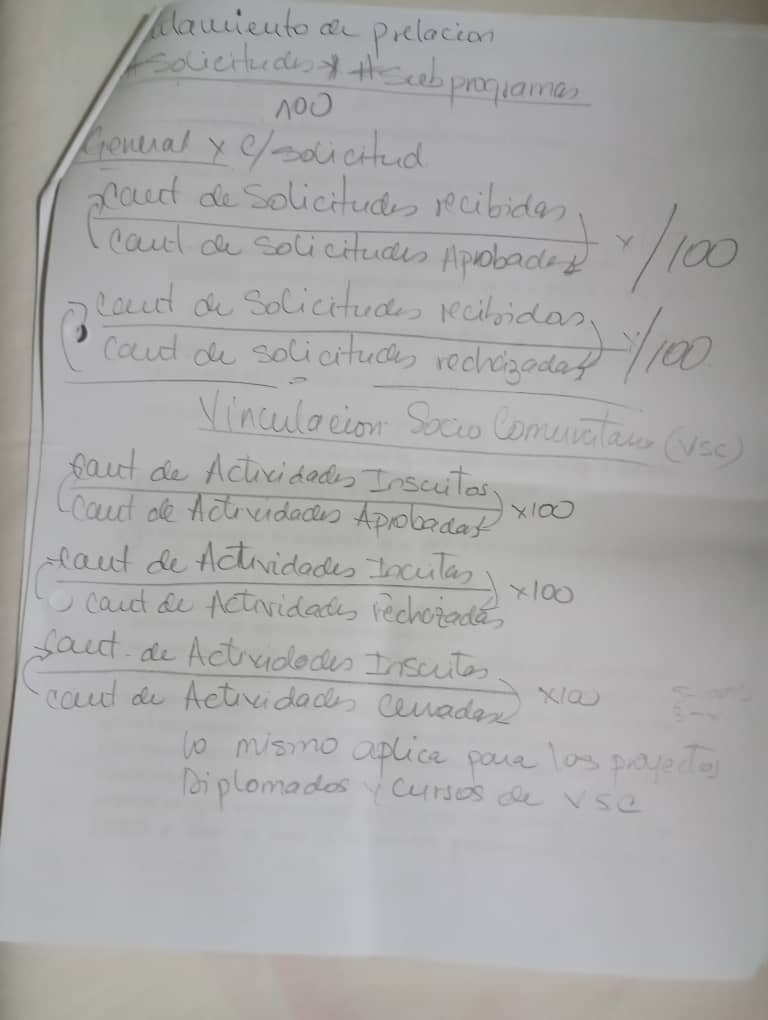 de prelacion
#Solicitudes * #Subprogramas
100
General x c/solicitud
(cant de Solicitudes recibidas
cant de Solicitudes Aprobadas) x/100
(cant de Solicitudes recibidas
cant de solicitudes rechazadas) x/100
=
Vinculacion Socio Comunitaria (VSC)
(cant de Actividades Inscritas
cant de Actividades Aprobadas) x100
(cant de Actividades Incritas
cant de Actividades rechazadas) x100
(cant. de Actividades Inscritas
cant de Actividades cerradas) x100
lo mismo aplica para los proyectos
Diplomados y cursos de VSC